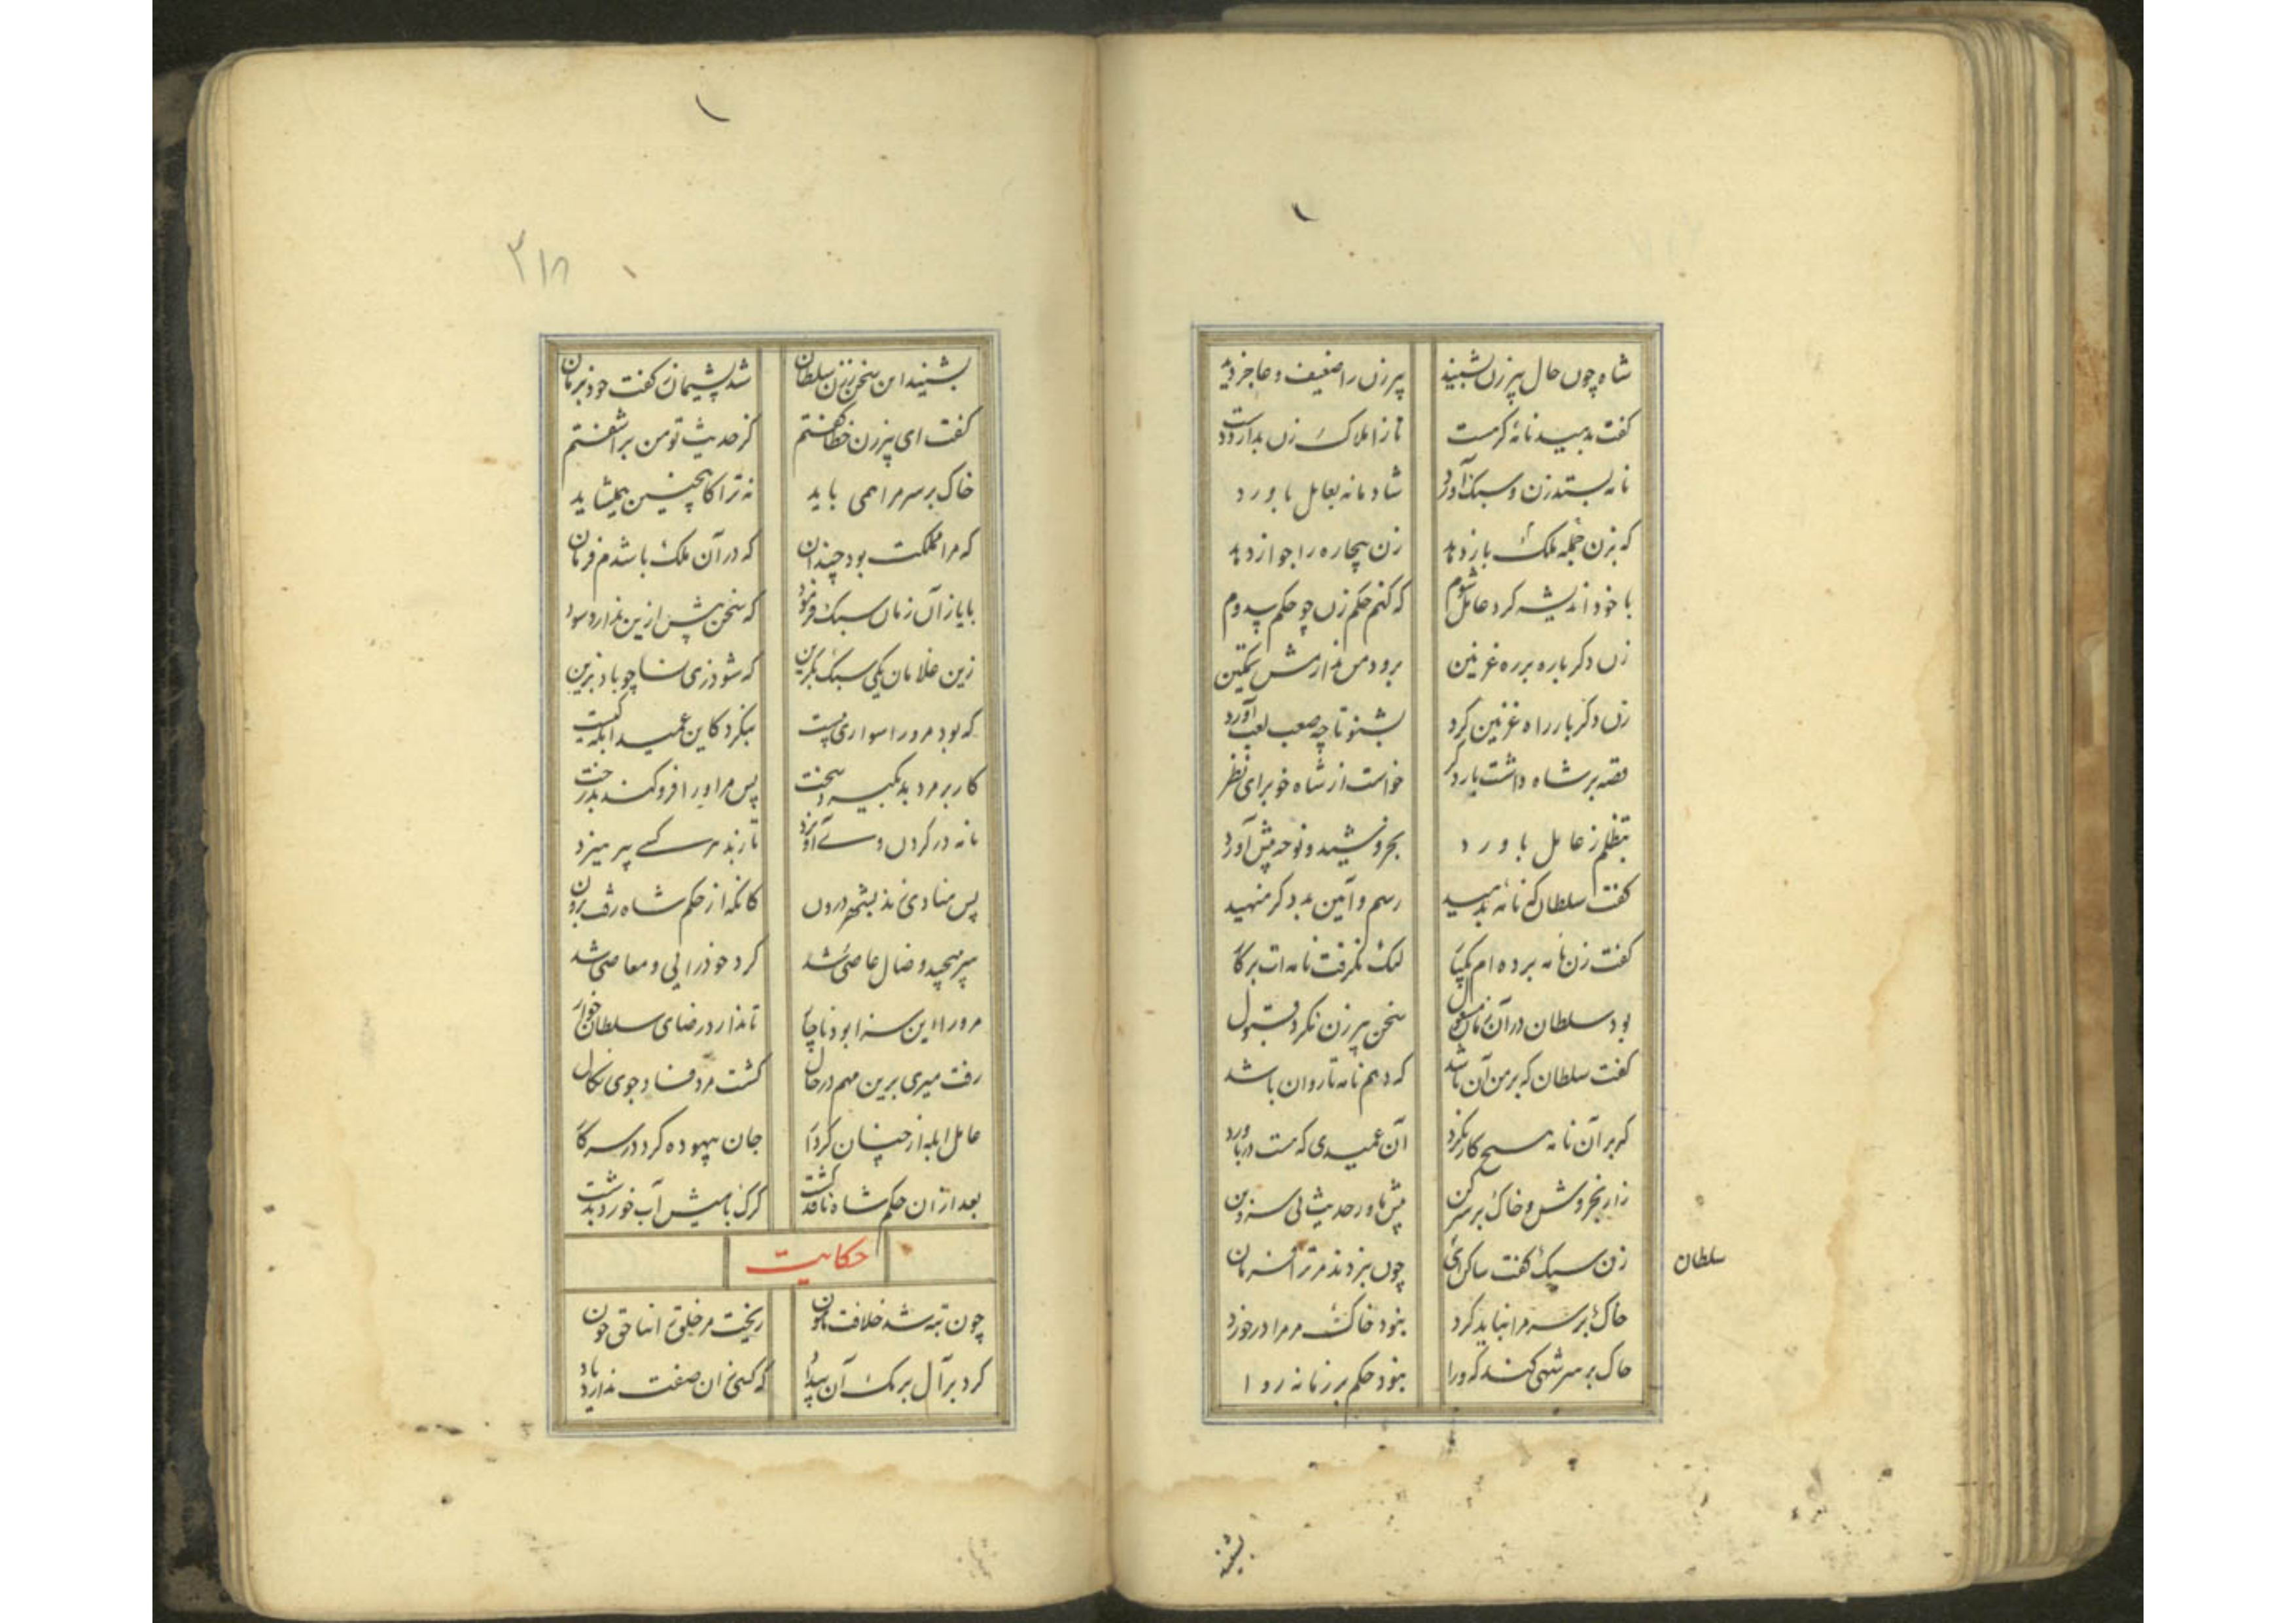 شاه چون حال پیرزن بشنید پیرزن را ضعیف و عاجز دید
گفت بدهید نامهٔ گرمست تا ز املاک زن بدارد دست
نامه بستد زن و سبک آورد شادمانه بعامل باورد
که بزن جمله ملک باز دهد زن بیچاره را جواز دهد
با خود اندیشه کرد عامل شوم که کنم حکم زن چو حکم سدوم
زن دگرباره بر ره غزنین نرود من ندارمش تمکین
زن دگر بار راه غزنین کرد بشنو تا چه صعب لعب آورد
قصه بر شاه داشت بار دگر خواست از شاه خوب رای نظر
بتظلم ز عامل باورد بخروشید و نوحه پیش آورد
گفت سلطان که نامه بدهید رسم و آیین بد دگر منهید
گفت زن نامه برده‌ام یکبار لیک نگرفت نامه‌ات بر کار
بود سلطان در آن زمان مشغول سخن پیرزن نکرد قبول
گفت سلطان که بر من آن باشد که دهم نامه تا روان باشد
گر بر آن نامه هیچ کار نکرد آن عمیدی که هست در باورد
زار بخروش و خاک بر سر کن پیش ماور حدیث بی سر و بن
زن سبک گفت ساکن ای چون نبردند مر ترا فرمان
سلطان
خاک بر سر مرا نباید کرد نبود خاک مر مرا در خورد
خاک بر سر شهی کند که ورا نبود حکم بر زمانه روا
بشنید
۲۱۸
بشنید این سخن ز زن سلطان شد پشیمان ز گفت خود بزمان
گفت ای پیرزن خطا گفتم کز حدیث تو من برآشفتم
خاک بر سر مرا همی باید نه ترا کاینچنین همیشاید
که مرا مملکت بود چندان که در آن ملک باشدم فرمان
بایاز آن زمان سبک فرمود که سخن بیش ازین ندارد سود
زین غلامان یکی سبک بگزین که شود زی نسا چو باد بزین
که بود مرورا سواری بیست بنگرد کاین عمید ابله کیست
کار بر مرد بد بگیرد سخت پس مراورا فرو کند بدرخت
نامه در گردن وی آویزد تا ز بد هر کسی بپرهیزد
پس منادی زند بشهر درون کانکه از حکم شاه رفت برون
سر بپیچید و ضال و عاصی شد گرد خود رایی و معاصی شد
مرورا این سزا بود ناچار تا ندارد رضای سلطان خوار
رفت میری برین مهم در حال کشت مرد فساد جوی نکال
عامل ابله از چنان کردار جان بیهوده کرد در سر کار
بعد از آن حکم شاه نافذ گشت گرگ با میش آب خورد بدشت
حکایت
چون تبه شد خلافت مامون ریخت مر خلق را بناحق خون
کرد بر آل برمک آن بیداد که کس آن صفت ندارد یاد